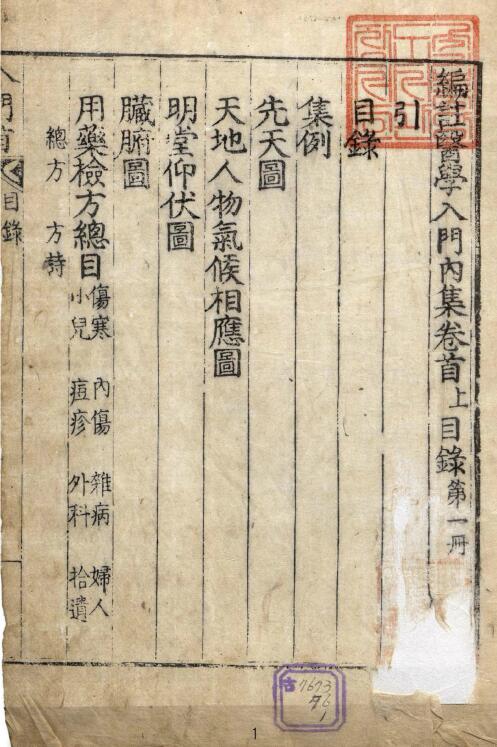 編註醫學入門內集卷首上目錄第一冊
引
目錄
集例
先天圖
天地人物氣候相應圖
明堂仰伏圖
臟腑圖
用藥檢方總目
傷寒 內傷 雜病 婦人
小兒 痘疹 外科 拾遺
總方
入門首
目錄
古7673
76
1
1